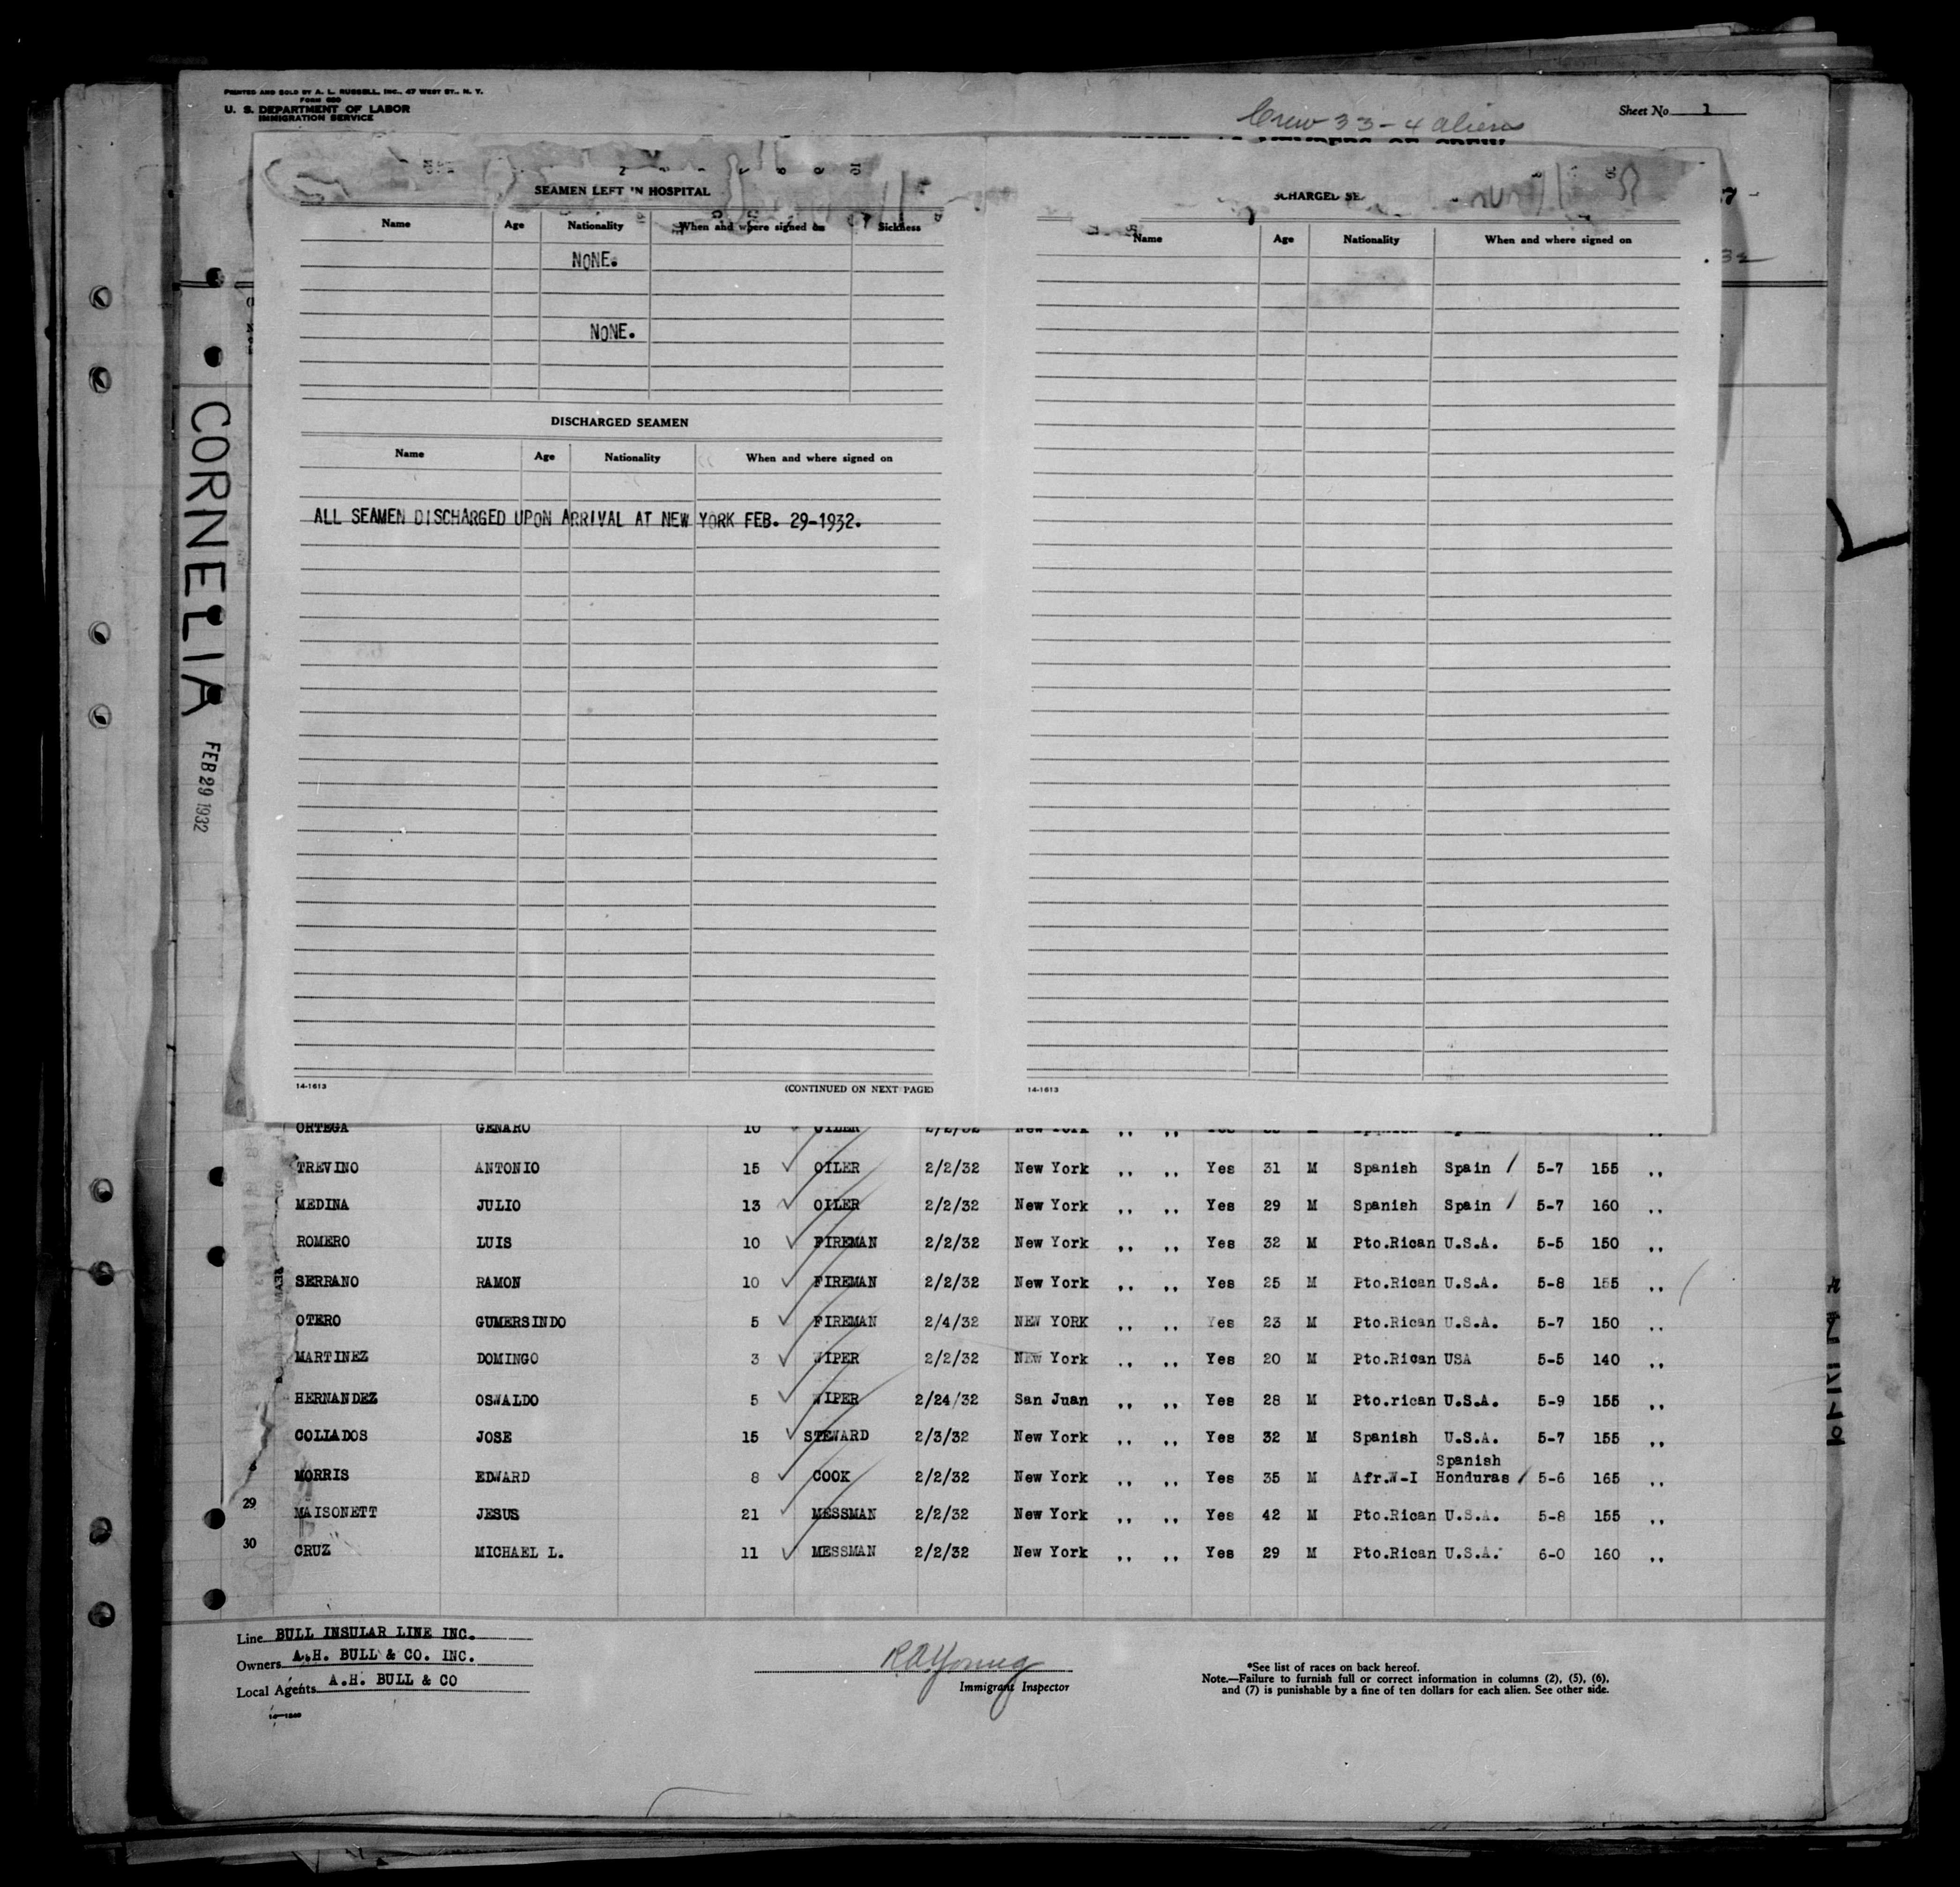 PRINTED AND SOLD BY A. L. RUSSELL, INC., 47 WEST ST., N. Y.
FORM 680
U. S. DEPARTMENT OF LABOR
IMMIGRATION SERVICE
Crew 33-4 aliens
Sheet No. 1
SEAMEN LEFT IN HOSPITAL
Name Age Nationality When and where signed on Sickness
NONE.
NONE.
DISCHARGED SEAMEN
Name Age Nationality When and where signed on
ALL SEAMEN DISCHARGED UPON ARRIVAL AT NEW YORK FEB. 29-1932.
14-1613 (CONTINUED ON NEXT PAGE)
Name Age Nationality When and where signed on
14-1613
CORNELIA
FEB 29 1932
ORTEGA GENARO 10 OILER 2/2/32 New York ,, ,,
TREVINO ANTONIO 15 ✓ OILER 2/2/32 New York ,, ,, Yes 31 M Spanish Spain / 5-7 155 ,,
MEDINA JULIO 13 ✓ OILER 2/2/32 New York ,, ,, Yes 29 M Spanish Spain / 5-7 160 ,,
ROMERO LUIS 10 ✓ FIREMAN 2/2/32 New York ,, ,, Yes 32 M Pto.Rican U.S.A. 5-5 150 ,,
SERRANO RAMON 10 ✓ FIREMAN 2/2/32 New York ,, ,, Yes 25 M Pto.Rican U.S.A. 5-8 155 ,,
OTERO GUMERSINDO 5 ✓ FIREMAN 2/4/32 NEW YORK ,, ,, Yes 23 M Pto.Rican U.S.A. 5-7 150 ,,
MARTINEZ DOMINGO 3 ✓ WIPER 2/2/32 New York ,, ,, Yes 20 M Pto.Rican USA 5-5 140 ,,
HERNANDEZ OSWALDO 5 ✓ WIPER 2/24/32 San Juan ,, ,, Yes 28 M Pto.rican U.S.A. 5-9 155 ,,
COLLADOS JOSE 15 ✓ STEWARD 2/3/32 New York ,, ,, Yes 32 M Spanish U.S.A. 5-7 155 ,,
Spanish
MORRIS EDWARD 8 ✓ COOK 2/2/32 New York ,, ,, Yes 35 M Afr.W-I Honduras / 5-6 165 ,,
29 MAISONETT JESUS 21 ✓ MESSMAN 2/2/32 New York ,, ,, Yes 42 M Pto.Rican U.S.A. 5-8 155 ,,
30 CRUZ MICHAEL L. 11 ✓ MESSMAN 2/2/32 New York ,, ,, Yes 29 M Pto.Rican U.S.A. 6-0 160 ,,
Line BULL INSULAR LINE INC.
Owners A.H. BULL & CO. INC.
Local Agents A.H. BULL & CO
R A Young
Immigrant Inspector
*See list of races on back hereof.
Note.—Failure to furnish full or correct information in columns (2), (5), (6),
and (7) is punishable by a fine of ten dollars for each alien. See other side.